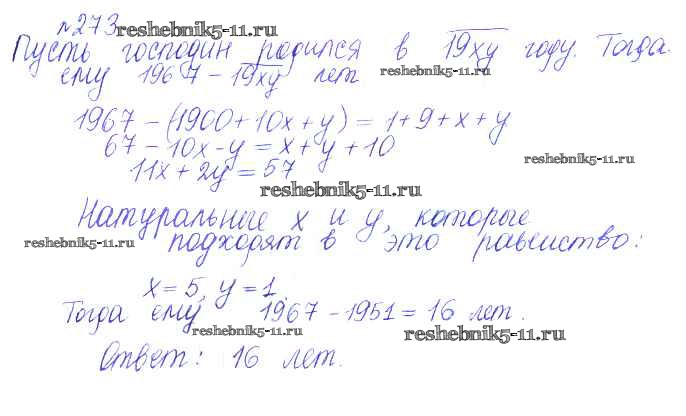 №273 reshebnik5-11.ru
Пусть господин родился в 19xy году. Тогда
ему 1967 - 19xy лет reshebnik5-11.ru
1967 - (1900 + 10x + y) = 1 + 9 + x + y
67 - 10x - y = x + y + 10 reshebnik5-11.ru
11x + 2y = 57
reshebnik5-11.ru
Натуральные x и y, которые
reshebnik5-11.ru подходят в это равенство:
x = 5, y = 1.
Тогда ему 1967 - 1951 = 16 лет.
reshebnik5-11.ru reshebnik5-11.ru
Ответ: 16 лет.